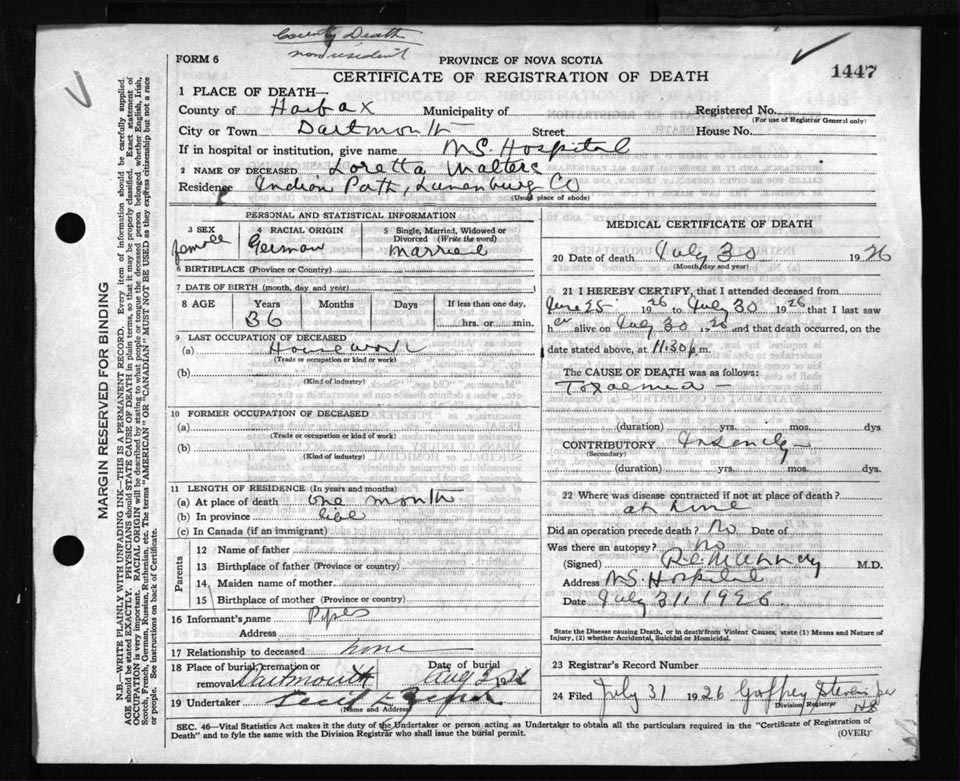 County Death
nonresident
FORM 6
PROVINCE OF NOVA SCOTIA
CERTIFICATE OF REGISTRATION OF DEATH
1447
1 PLACE OF DEATH—
County of Halifax Municipality of Registered No.
(For use of Registrar General only)
City or Town Dartmouth Street House No.
If in hospital or institution, give name N.S. Hospital
2 NAME OF DECEASED Loretta Walters
Residence Indian Path, Lunenburg Co
(Usual place of abode)
PERSONAL AND STATISTICAL INFORMATION
3 SEX 4 RACIAL ORIGIN 5 Single, Married, Widowed or Divorced (Write the word)
Female German married
6 BIRTHPLACE (Province or Country)
7 DATE OF BIRTH (month, day and year)
8 AGE Years Months Days If less than one day,
36 hrs. or min.
9 LAST OCCUPATION OF DECEASED
(a) Housework
(Trade or occupation or kind or work)
(b)
(Kind of industry)
10 FORMER OCCUPATION OF DECEASED
(a)
(Trade or occupation or kind of work)
(b)
(Kind of industry)
11 LENGTH OF RESIDENCE (In years and months)
(a) At place of death one month
(b) In province life
(c) In Canada (if an immigrant)
Parents
12 Name of father
13 Birthplace of father (Province or country)
14 Maiden name of mother
15 Birthplace of mother (Province or country)
16 Informant's name
Address
17 Relationship to deceased none
18 Place of burial, cremation or removal Dartmouth Date of burial Aug
19 Undertaker
(Name and Address)
MEDICAL CERTIFICATE OF DEATH
20 Date of death July 30 1926
(Month, day and year)
21 I HEREBY CERTIFY, that I attended deceased from
June 25 1926 to July 30 1926 that I last saw
her alive on July 30 1926 and that death occurred, on the
date stated above, at 11.30 p.m.
The CAUSE OF DEATH was as follows:
Toxaemia —
(duration) yrs. mos. dys
CONTRIBUTORY
(Secondary)
(duration) yrs. mos. dys.
22 Where was disease contracted if not at place of death?
at home
Did an operation precede death? No Date of
Was there an autopsy? No
(Signed) M.D.
Address N.S. Hospital
Date July 31 1926.
State the Disease causing Death, or in death from Violent Causes, state (1) Means and Nature of
Injury, (2) whether Accidental, Suicidal or Homicidal.
23 Registrar's Record Number
24 Filed July 31 1926
Division Registrar
SEC. 46—Vital Statistics Act makes it the duty of the Undertaker or person acting as Undertaker to obtain all the particulars required in the "Certificate of Registration of
Death" and to fyle the same with the Division Registrar who shall issue the burial permit.
(OVER)
MARGIN RESERVED FOR BINDING
N.B.—WRITE PLAINLY WITH UNFADING INK—THIS IS A PERMANENT RECORD. Every item of information should be carefully supplied.
AGE should be stated EXACTLY. PHYSICIANS should STATE CAUSE OF DEATH in plain terms, so that it may be properly classified. Exact statement of
OCCUPATION is very important. RACIAL ORIGIN will be described by stating to what people or tongue the deceased person belonged whether English, Irish,
Scotch, French, German, Russian, Ruthenian, etc. The terms "AMERICAN" OR "CANADIAN" MUST NOT BE USED as they express citizenship but not a race
or people. See instructions on back of Certificate.